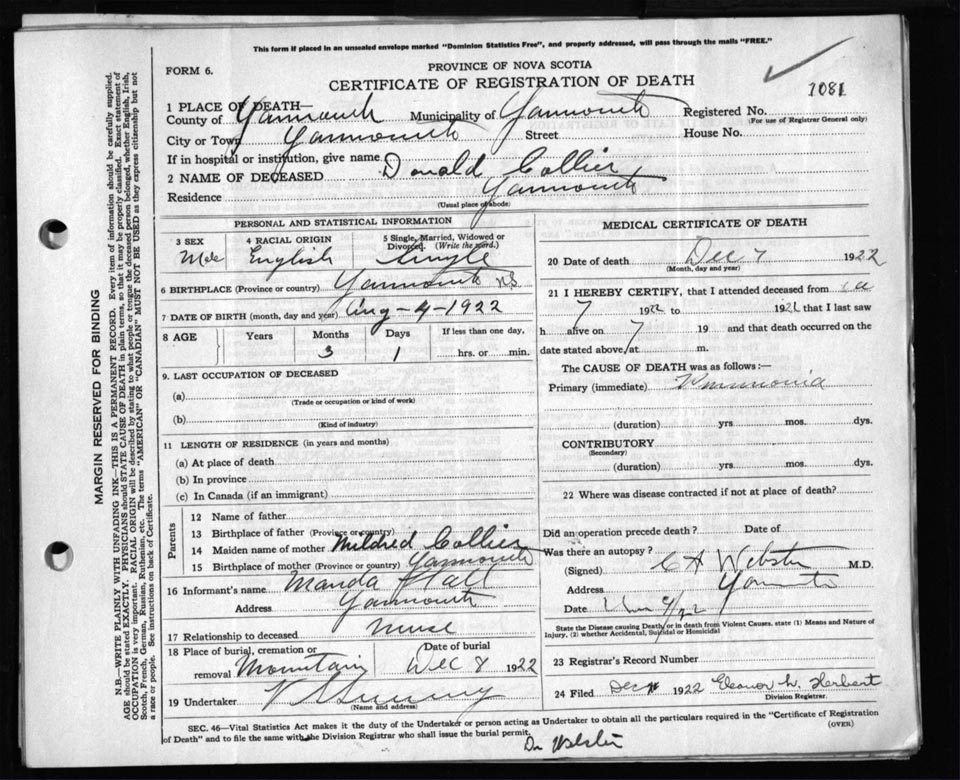 This form if placed in an unsealed envelope marked "Dominion Statistics Free", and properly addressed, will pass through the mails "FREE."
PROVINCE OF NOVA SCOTIA
FORM 6.
CERTIFICATE OF REGISTRATION OF DEATH
7081
1 PLACE OF DEATH—
County of Yarmouth Municipality of Yarmouth Registered No.
(For use of Registrar General only)
City or Town Yarmouth Street House No.
If in hospital or institution, give name
2 NAME OF DECEASED Donald Collier
Residence Yarmouth
(Usual place of abode)
PERSONAL AND STATISTICAL INFORMATION
3 SEX 4 RACIAL ORIGIN 5 Single, Married, Widowed or Divorced. (Write the word.)
Male English Single
6 BIRTHPLACE (Province or country) Yarmouth NS
7 DATE OF BIRTH (month, day and year) Aug-4-1922
8 AGE Years Months Days If less than one day,
3 1 hrs. or min.
9. LAST OCCUPATION OF DECEASED
(a)
(Trade or occupation or kind of work)
(b)
(Kind of industry)
11 LENGTH OF RESIDENCE (in years and months)
(a) At place of death
(b) In province
(c) In Canada (if an immigrant)
Parents
12 Name of father
13 Birthplace of father (Province or country)
14 Maiden name of mother Mildred Collier
15 Birthplace of mother (Province or country) Yarmouth
16 Informant's name Manda Hall
Address Yarmouth
17 Relationship to deceased Nurse
18 Place of burial, cremation or removal Mountain Date of burial Dec 8 1922
19 Undertaker V
(Name and address)
MEDICAL CERTIFICATE OF DEATH
20 Date of death Dec 7 1922
(Month, day and year)
21 I HEREBY CERTIFY, that I attended deceased from
7 1922 to 1922 that I last saw
h alive on 7 19 and that death occurred on the
date stated above, at m.
The CAUSE OF DEATH was as follows:—
Primary (immediate) Pneumonia
(duration) yrs. mos. dys.
CONTRIBUTORY
(Secondary)
(duration) yrs. mos. dys.
22 Where was disease contracted if not at place of death?
Did an operation precede death? Date of
Was there an autopsy?
(Signed) C A Webster M.D.
Address Yarmouth
Date /22
State the Disease causing Death, or in death from Violent Causes, state (1) Means and Nature of Injury, (2) whether Accidental, Suicidal or Homicidal
23 Registrar's Record Number
24 Filed Dec 1922 Eleanor W. Herbert
Division Registrar.
SEC. 46—Vital Statistics Act makes it the duty of the Undertaker or person acting as Undertaker to obtain all the particulars required in the "Certificate of Registration
of Death" and to file the same with the Division Registrar who shall issue the burial permit. (OVER)
Dr Webster
MARGIN RESERVED FOR BINDING
N.B.—WRITE PLAINLY WITH UNFADING INK—THIS IS A PERMANENT RECORD. Every item of information should be carefully supplied.
AGE should be stated EXACTLY. PHYSICIANS should STATE CAUSE OF DEATH in plain terms, so that it may be properly classified. Exact statement of
OCCUPATION is very important. RACIAL ORIGIN will be described by stating to what people or tongue the deceased person belonged, whether English, Irish,
Scotch, French, German, Russian, Ruthenian, etc. The terms "AMERICAN" OR "CANADIAN" MUST NOT BE USED as they express citizenship but not
a race or people. See instructions on back of Certificate.